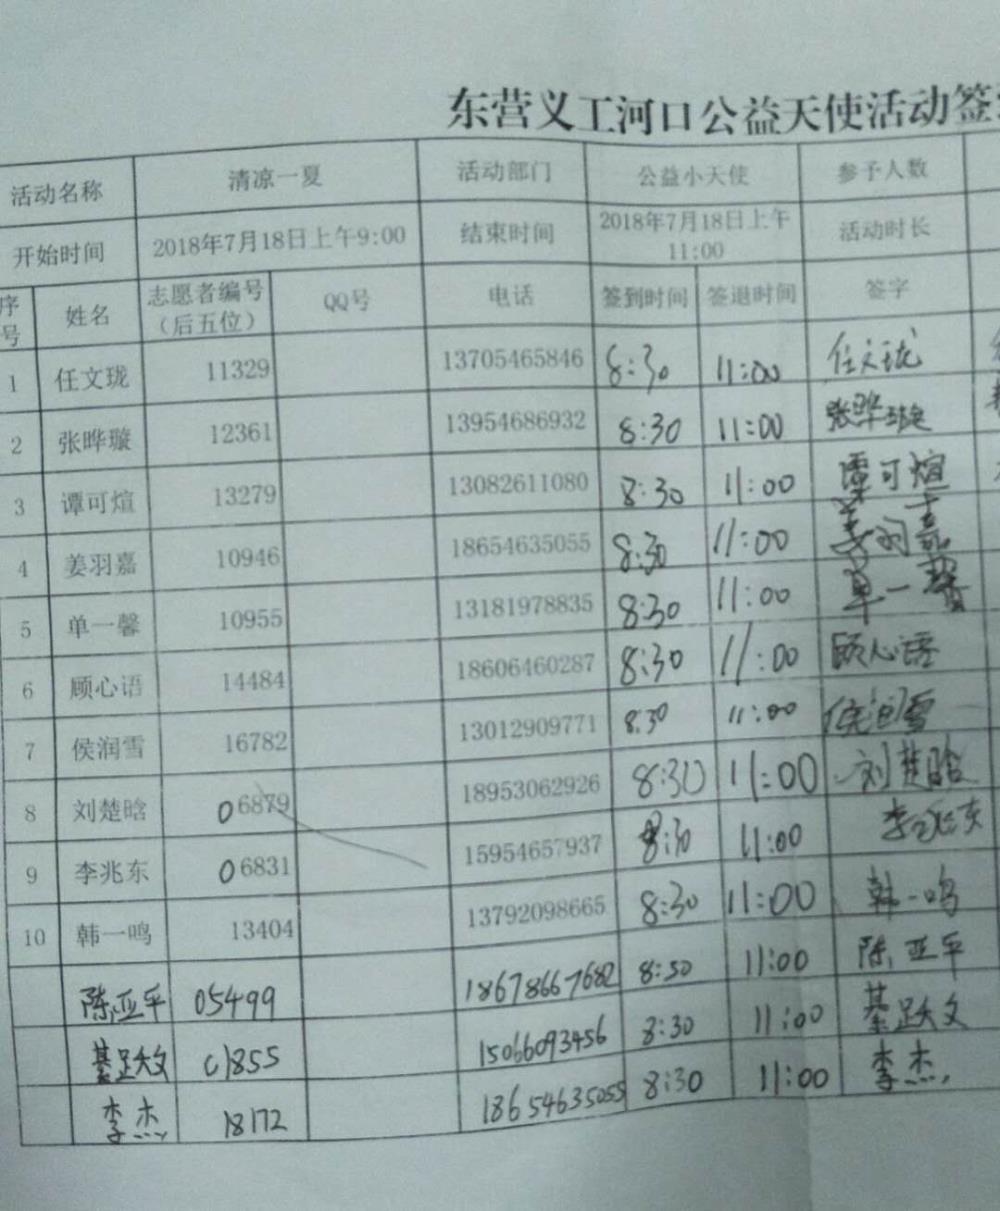 东营义工河口公益天使活动签
活动名称 清凉一夏 活动部门 公益小天使 参予人数
开始时间 2018年7月18日上午9:00 结束时间 2018年7月18日上午11:00 活动时长
序号 姓名 志愿者编号（后五位） QQ号 电话 签到时间 签退时间 签字
1 任文珑 11329 13705465846 8:30 11:00 任文珑
2 张晔璇 12361 13954686932 8:30 11:00 张晔璇
3 谭可煊 13279 13082611080 8:30 11:00 谭可煊
4 姜羽嘉 10946 18654635055 8:30 11:00 姜羽嘉
5 单一馨 10955 13181978835 8:30 11:00 单一馨
6 顾心语 14484 18606460287 8:30 11:00 顾心语
7 侯润雪 16782 13012909771 8:30 11:00 侯润雪
8 刘楚晗 06879 18953062926 8:30 11:00 刘楚晗
9 李兆东 06831 15954657937 8:30 11:00 李兆东
10 韩一鸣 13404 13792098665 8:30 11:00 韩一鸣
陈亚平 05499 18678667682 8:30 11:00 陈亚平
綦跃文 01855 15066093456 8:30 11:00 綦跃文
李杰 18172 18654635055 8:30 11:00 李杰